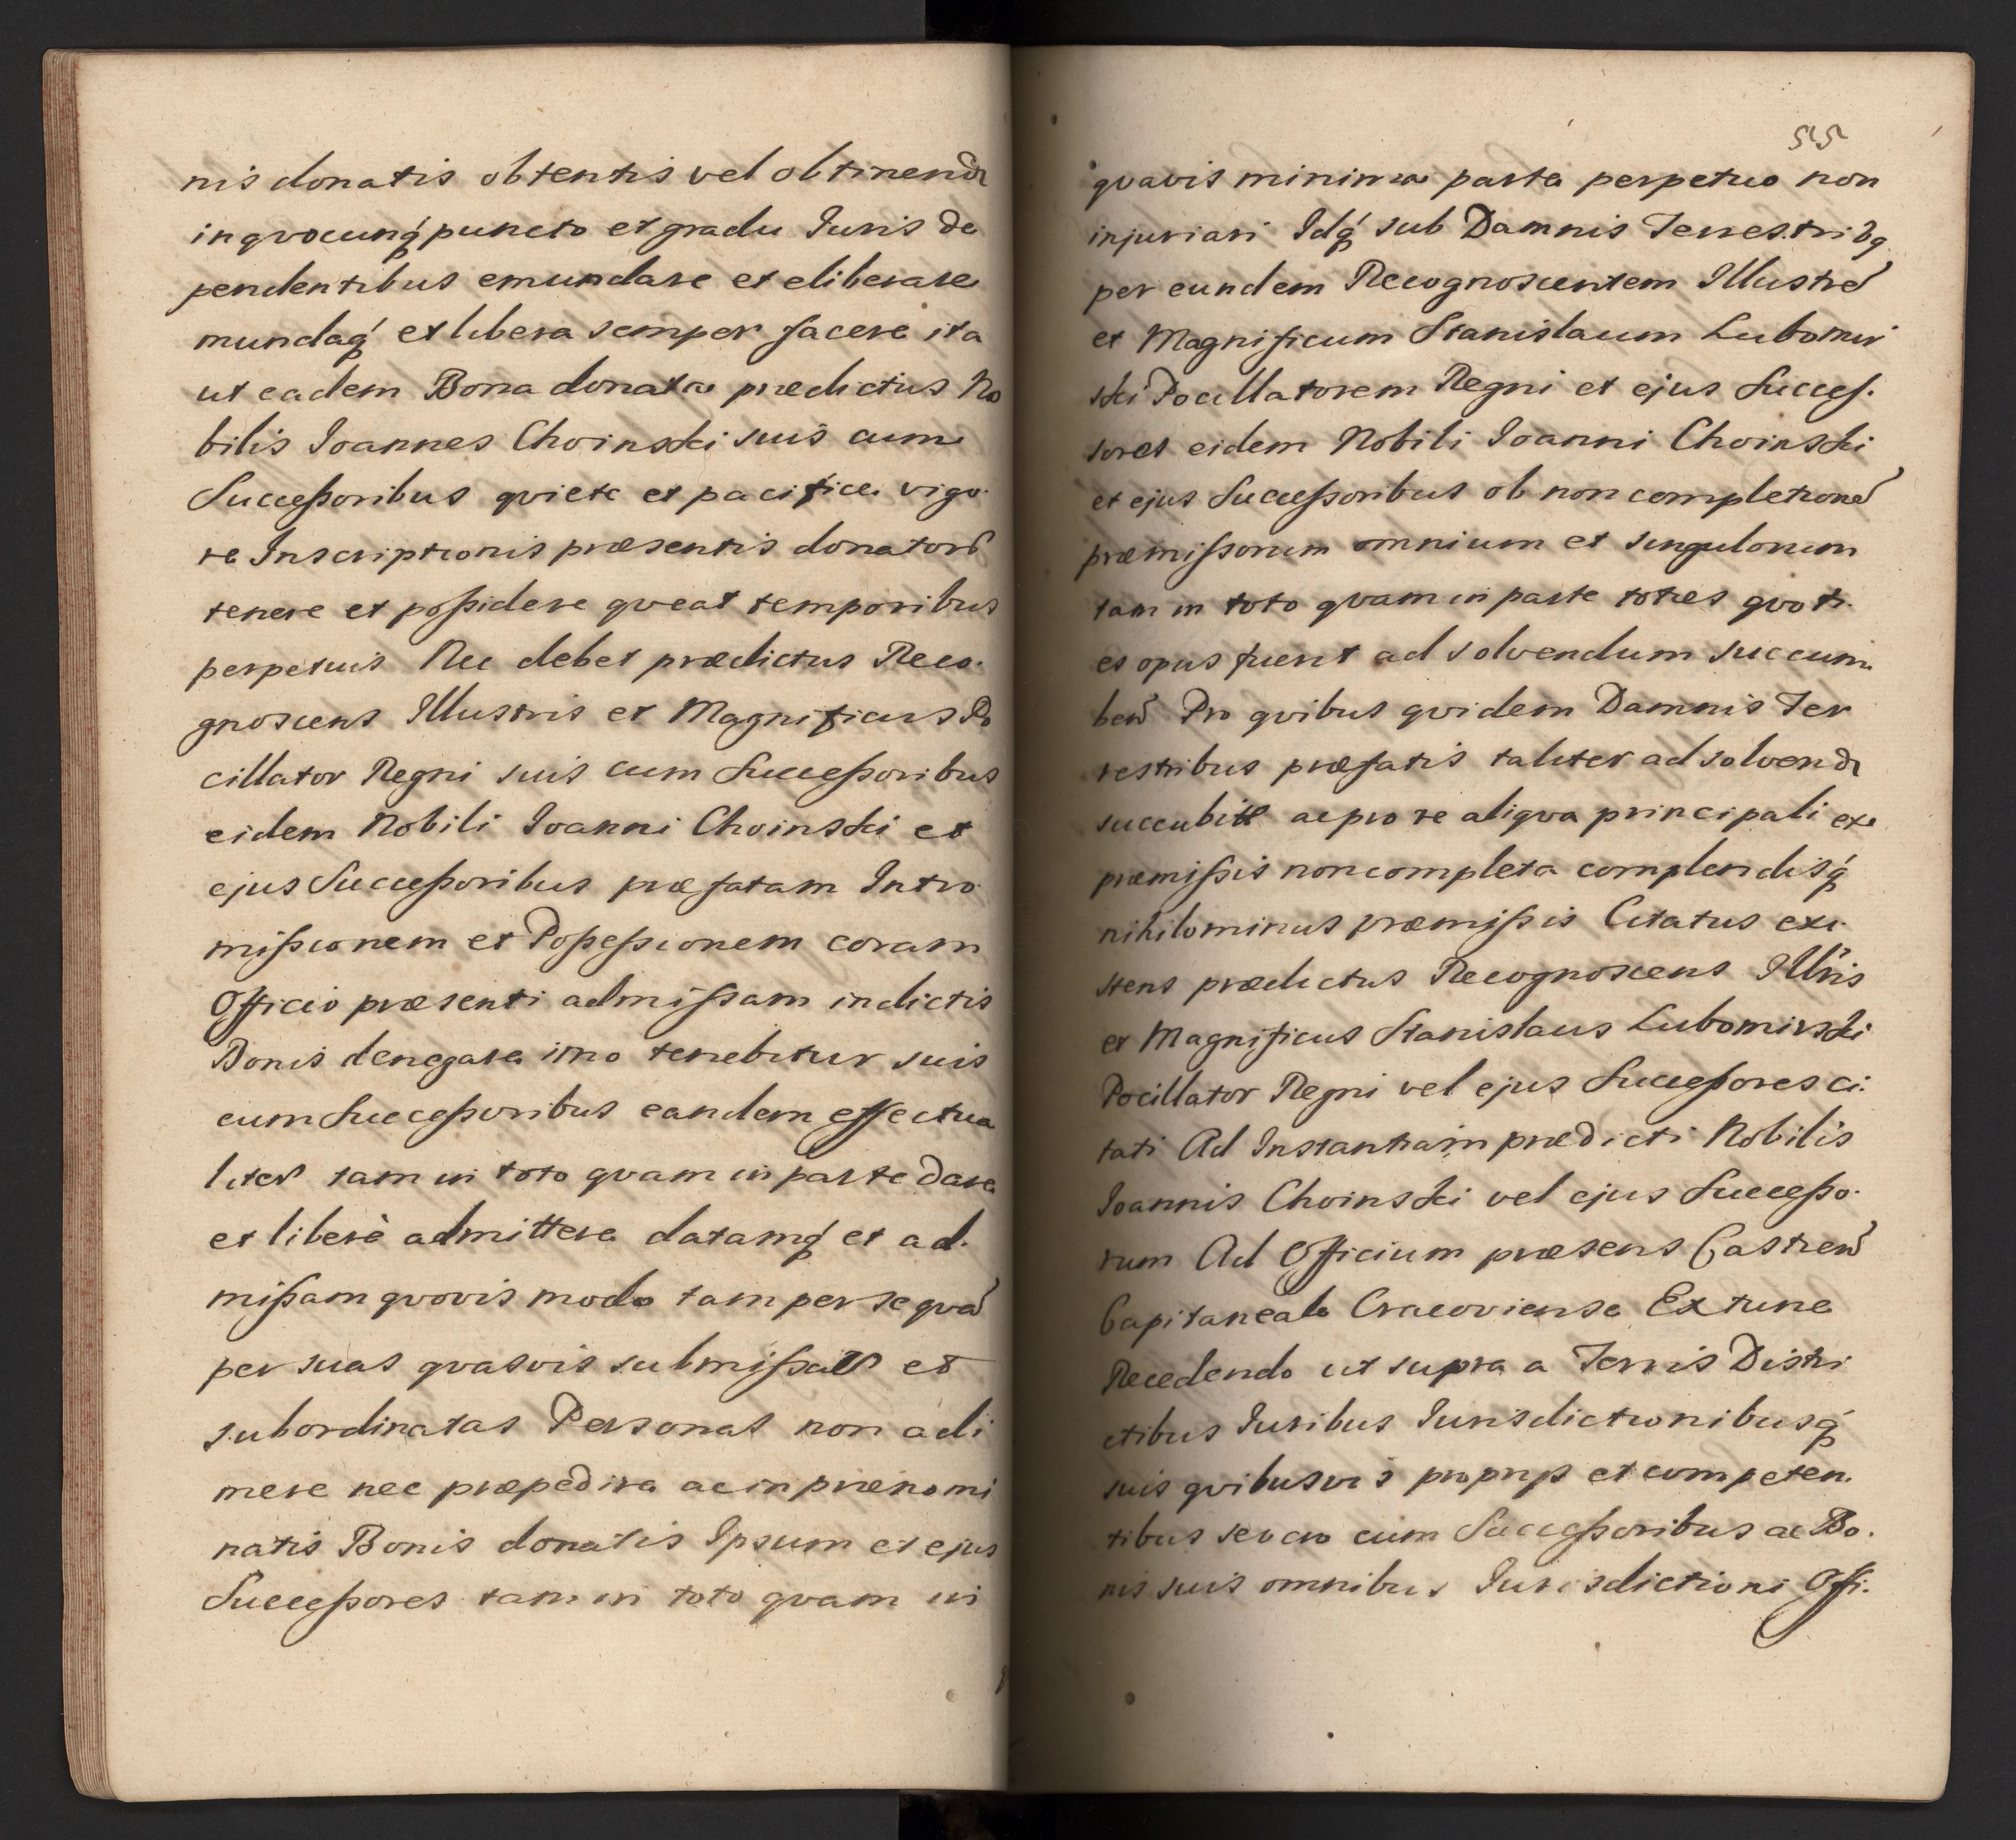 nis donatis obtentis vel obtinend
in qvocunq́ puncto et gradu Iuris de
pendentibus emundare et eliberare
mundaq́ et libera semper facere ita
ut eadem Bona donata prædictus No
bilis Ioannes Choinski suis cum
Succeßoribus qviete et pacifice vigo.
re Inscriptionis præsentis donatoræ
tenere et poßidere qveat temporibus
perpetuis Nec debet prædictus Reco.
gnoscens Illustris et Magnificus Po
cillator Regni suis cum Succeßoribus
eidem Nobili Ioanni Choinski et
ejus Succeßoribus præfatam Intro
mißionem et Poßeßionem coram
Officio præsenti admißam in dictis
Bonis denegare imo tenebitur suis
cum Succeßoribus eandem effectua
liter tam in toto qvam in parte dare
et liberè admittere datamq́ et ad.
mißam qvovis modo tam per se qva
per suas qvasvis submißas et
subordinatas Personas non adi
mere nec præpedire ac in prænomi
natis Bonis donatis Ipsum et ejus
Succeßores tam in toto qvam in
55
qvavis minima parte perpetuo non
injuriari Idq́ sub Damnis Terrestribq
per eundem Recognoscentem Illustre
et Magnificum Stanislaum Lubomir
ski Pocillatorem Regni et ejus Succeß.
sores eidem Nobili Ioanni Choinski
et ejus Succeßoribus ob non completione
præmißorum omnium et singulorum
tam in toto qvam in parte toties qvoti.
es opus fuerit ad solvendum succum
ben Pro qvibus qvidem Damnis Ter
restribus præfatis taliter ad solvend
succubit ac pro re aliqva principali ex
præmißis non completa complendisq́
nihilominus præmißis Citatus exi.
stens prædictus Recognoscens Illris
et Magnificus Stanislaus Lubomirski
Pocillator Regni vel ejus Succeßores ci.
tati Ad Instantiam prædicti Nobilis
Ioannis Choinski vel ejus Succeßo.
rum Ad Officium præsens Castren
Capitaneale Cracoviense Ex tunc
Recedendo ut supra a Terris Distri
ctibus Iuribus Iurisdictionibusq́
suis qvibusvis proprijs et competen.
tibus se vero cum Succeßoribus ac Bo.
nis suis omnibus Iurisdictioni Offi.